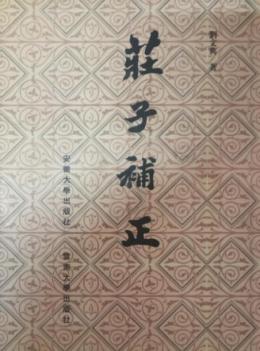 劉文典 著
莊子補正
安徽大學出版社 雲南大學出版社